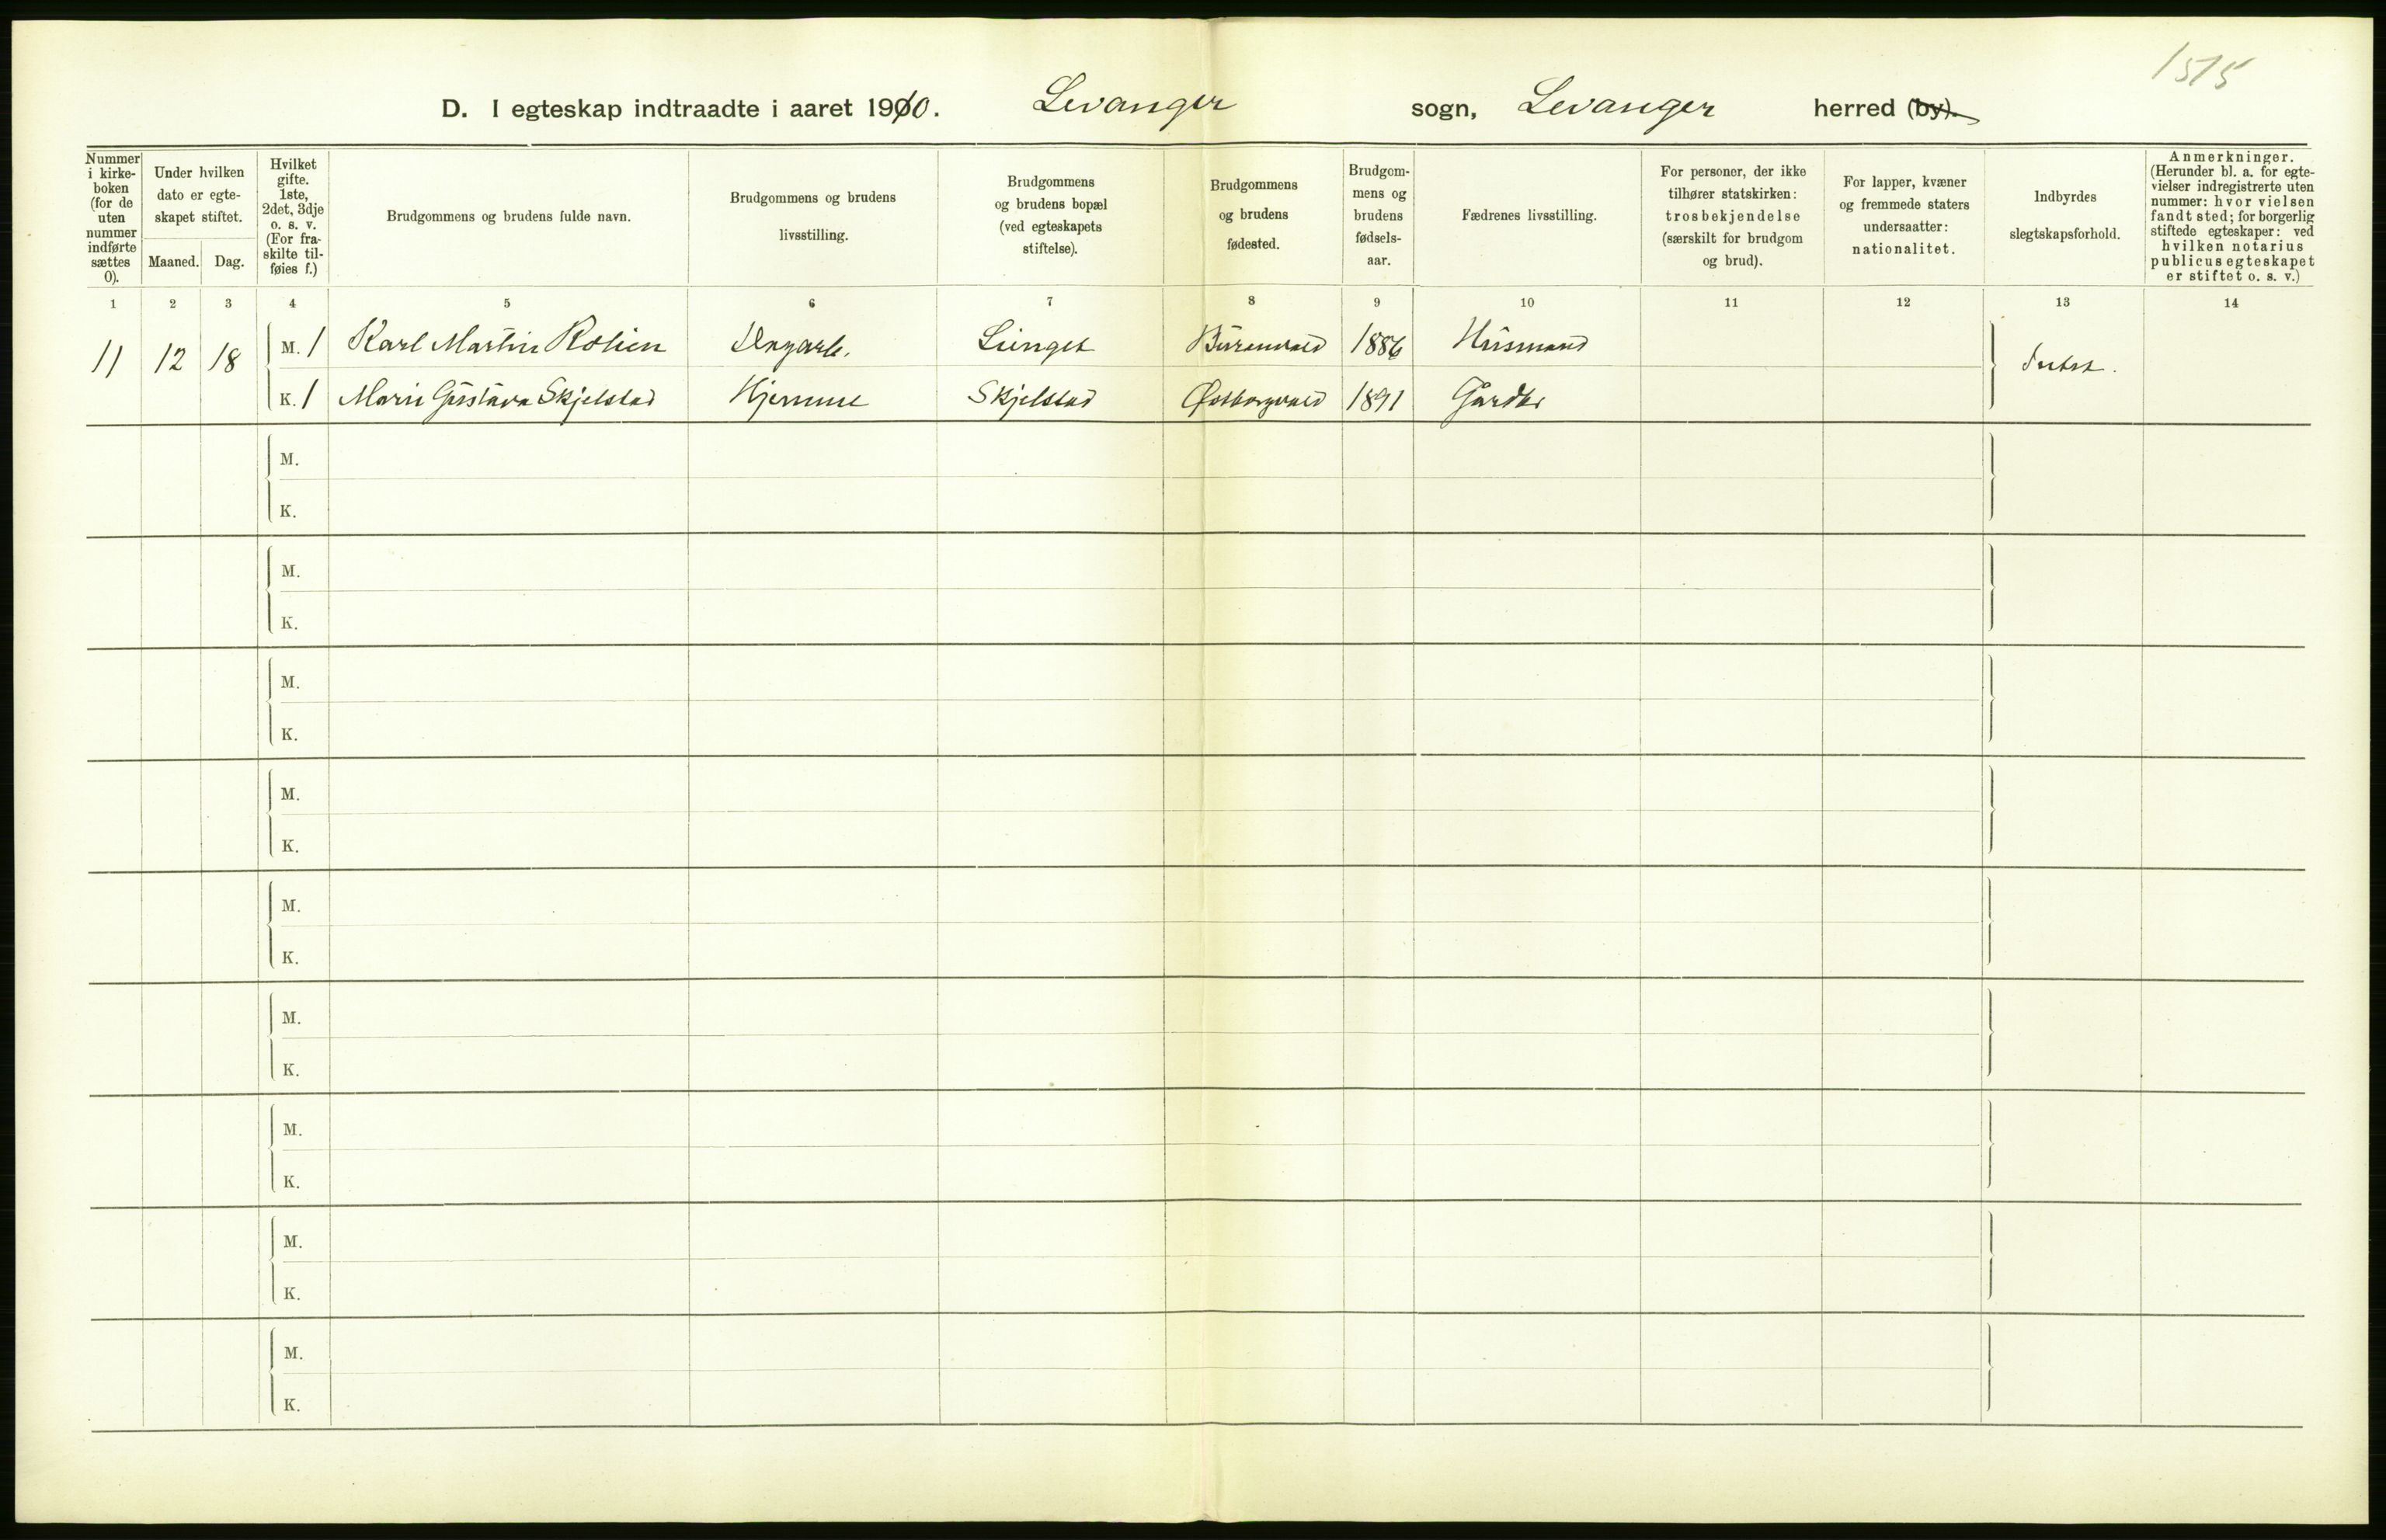 1515
D. I egteskap indtraadte i aaret 1910. Levanger sogn, Levanger herred (by).
Nummer i kirke-boken (for de uten nummer indførte sættes 0).
Under hvilken dato er egte-skapet stiftet.
Maaned. Dag.
Hvilket gifte. 1ste, 2det, 3dje o. s. v. (For fra-skilte til-føies f.)
Brudgommens og brudens fulde navn.
Brudgommens og brudens livsstilling.
Brudgommens og brudens bopæl (ved egteskapets stiftelse).
Brudgommens og brudens fødested.
Brudgom-mens og brudens fødsels-aar.
Fædrenes livsstilling.
For personer, der ikke tilhører statskirken: trosbekjendelse (særskilt for brudgom og brud).
For lapper, kvæner og fremmede staters undersaatter: nationalitet.
Indbyrdes slegtskapsforhold.
Anmerkninger. (Herunder bl. a. for egte-vielser indregistrerte uten nummer: hvor vielsen fandt sted; for borgerlig stiftede egteskaper: ved hvilken notarius publicus egteskapet er stiftet o. s. v.)
1 2 3 4 5 6 7 8 9 10 11 12 13 14
11 12 18 M. 1 Karl Martin 1886 Husmand
K. 1 Marie Gustava Skjelstad Hjemme Skjelstad 1891 Gårdbr
M.
K.
M.
K.
M.
K.
M.
K.
M.
K.
M.
K.
M.
K.
M.
K.
M.
K.